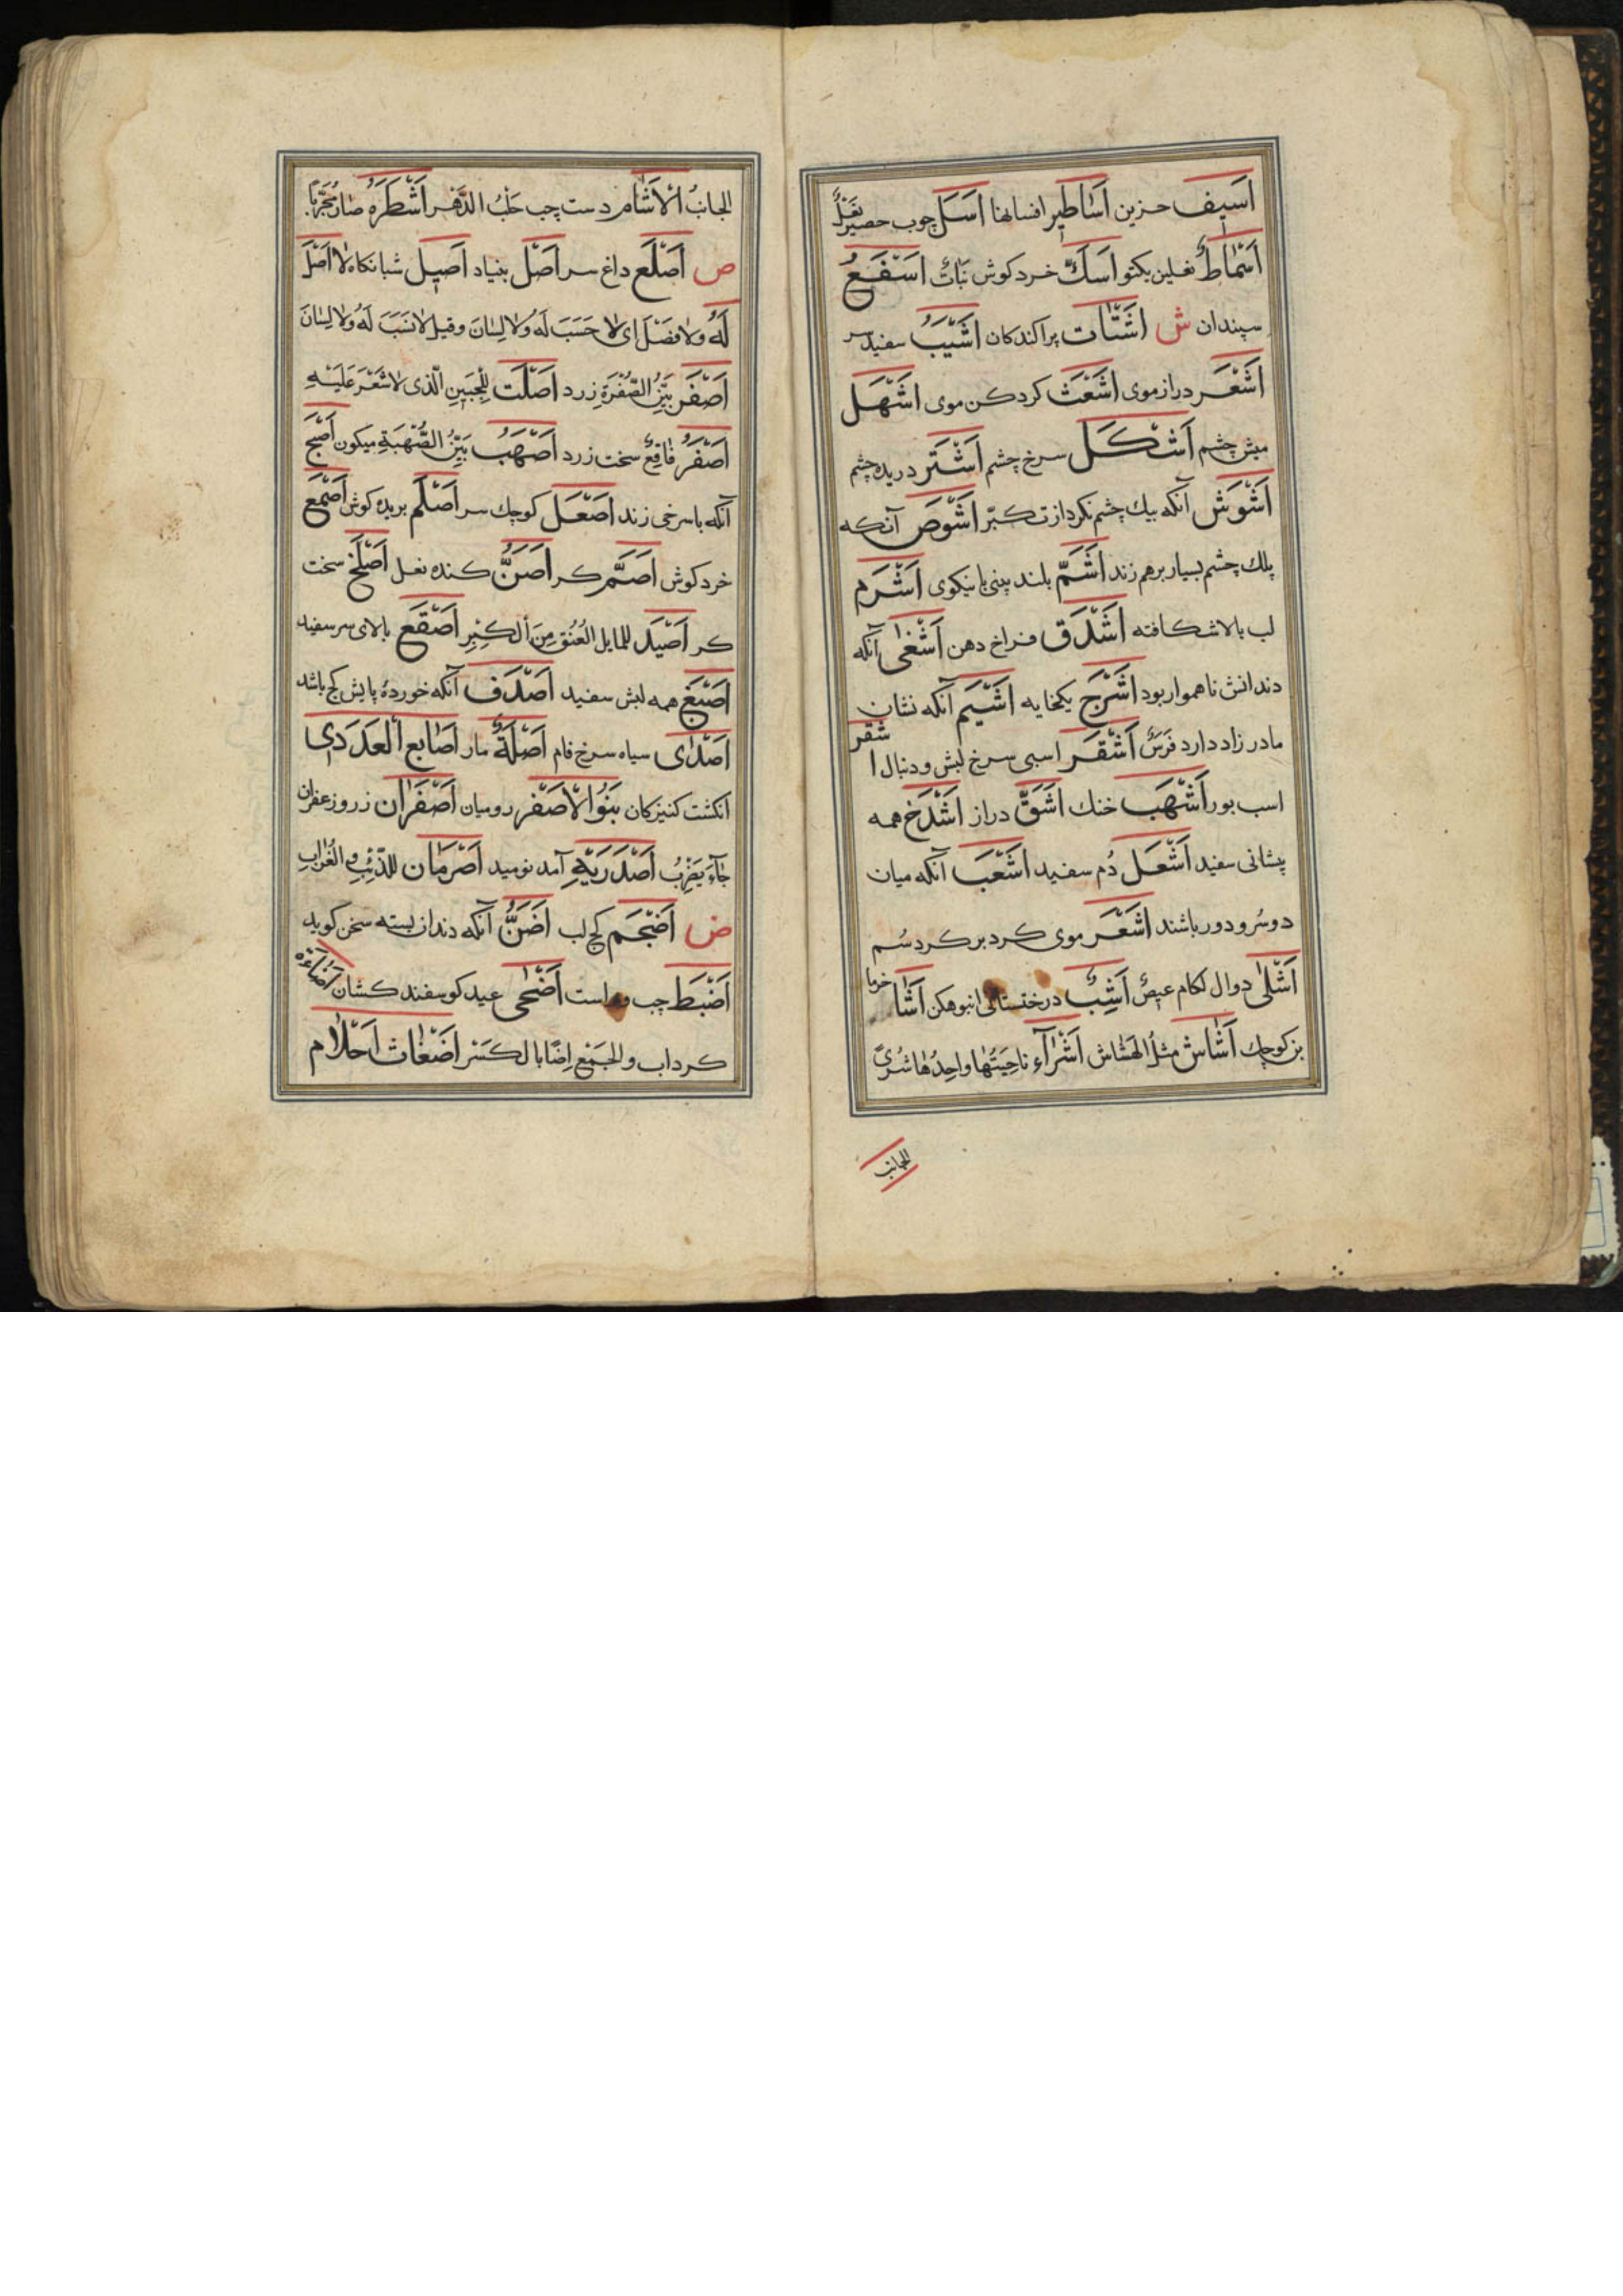 اَسیف حزین اَسَاطیر افسانها اَسَل چوب حصیر نَعْلٌ
اَسْمَاطٌ نعلین یکتو اَسَكّ خرد کوش نَبَاتٌ اَسْفَعُ
سپندان ش اَشتَات پراکندکان اَشْیَبُ سفید سر
اَشْعَر دراز موی اَشْعَث کرد کن موی اَشْهَل
میش چشم اَشْکَل سرخ چشم اَشْتَر دریده چشم
اَشْوَش آنکه بیك چشم نکرد از تکبّر اَشْوَص آنکه
پلك چشم بسیار برهم زند اَشَمّ بلند بینی با نیکوی اَشْرَم
لب بالا شکافته اَشْدَق فراخ دهن اَشْغٰی آنکه
دندانش ناهموار بود اَشْرَج یکخایه اَشْیَم آنکه نشان
مادر زاد دارد فَرَسٌ اَشْقَر اسبی سرخ لبش و دنبال اشقر
اسب بور اَشْهَب خنك اَشَقّ دراز اَشْدَخ همه
پیشانی سفید اَشْعَل دُم سفید اَشْعَب آنکه میان
دو سُرو دور باشند اَشْعَر موی کرد بر کرد سُم
اَشْلٰی دوال لکام عیصٌ اَشِبٌ درختستانی انبوه اَشَا خرما
بز کوچك اَشَاش مثلُ الهَشَاش اَشْرَآء نَاحِیَتُهَا وَاحِدُهَا شرًی
الجانب
الجانبُ الْاَشْاَم دست چپ حَلَبُ الدَّهْر اَشْطَرَهُ صَارَ مُجَرَّبًا
ص اَصْلَع داغ سر اَصْل بنیاد اَصیل شبانکاه لَا اَصْلَ
لَهُ وَلا فَصْلَ ای لا حَسَبَ لَهُ وَلا لِسَانَ وقیل لا نَسَبَ لَهُ وَلا لِسَانَ
اَصْفَر بَیِّنُ الصُّفْرَةِ زرد اَصْلَت لِلْجَبینِ الَّذی لا شَعْرَ عَلَیْهِ
اَصْفَرُ فَاقِعٌ سخت زرد اَصْهَبُ بَیِّنُ الصُّهْبَةِ میکون اَصْبَح
آنکه با سرخی زند اَصْعَل کوچك سر اَصْلَم بریده کوش اَصْمَع
خرد کوش اَصَمّ کر اَصَنُّ کنده بغل اَصْلَخ سخت
کر اَصْیَد للمایل العُنُقِ مِنَ الْکِبْرِ اَصْقَع بالای سر سفید
اَصْبَغ همه لبش سفید اَصْدَف آنکه خوردهٔ پایش کج باشد
اَصْدَای سیاه سرخ فام اَصَلَةٌ مار اَصَابِع الْعَدَدٰی
انکشت کنیزکان بَنُوا الْاَصْفَر رومیان اَصْفَرَان زر و زعفران
جَآءَ یَضْرِبُ اَصْدَرَیْهِ آمد نومید اَصْرَمَان للذِّئْبِ والغُرَابِ
ض اَضْجَم کج لب اَضَنُّ آنکه دندان بسته سخن کوید
اَضْبَط چپ و راست اَضْحٰی عید کوسفند کشان اَضَاءَة
کرداب والجَمْع اِضًا بالکَسْر اَضْغَاثُ اَحْلَام